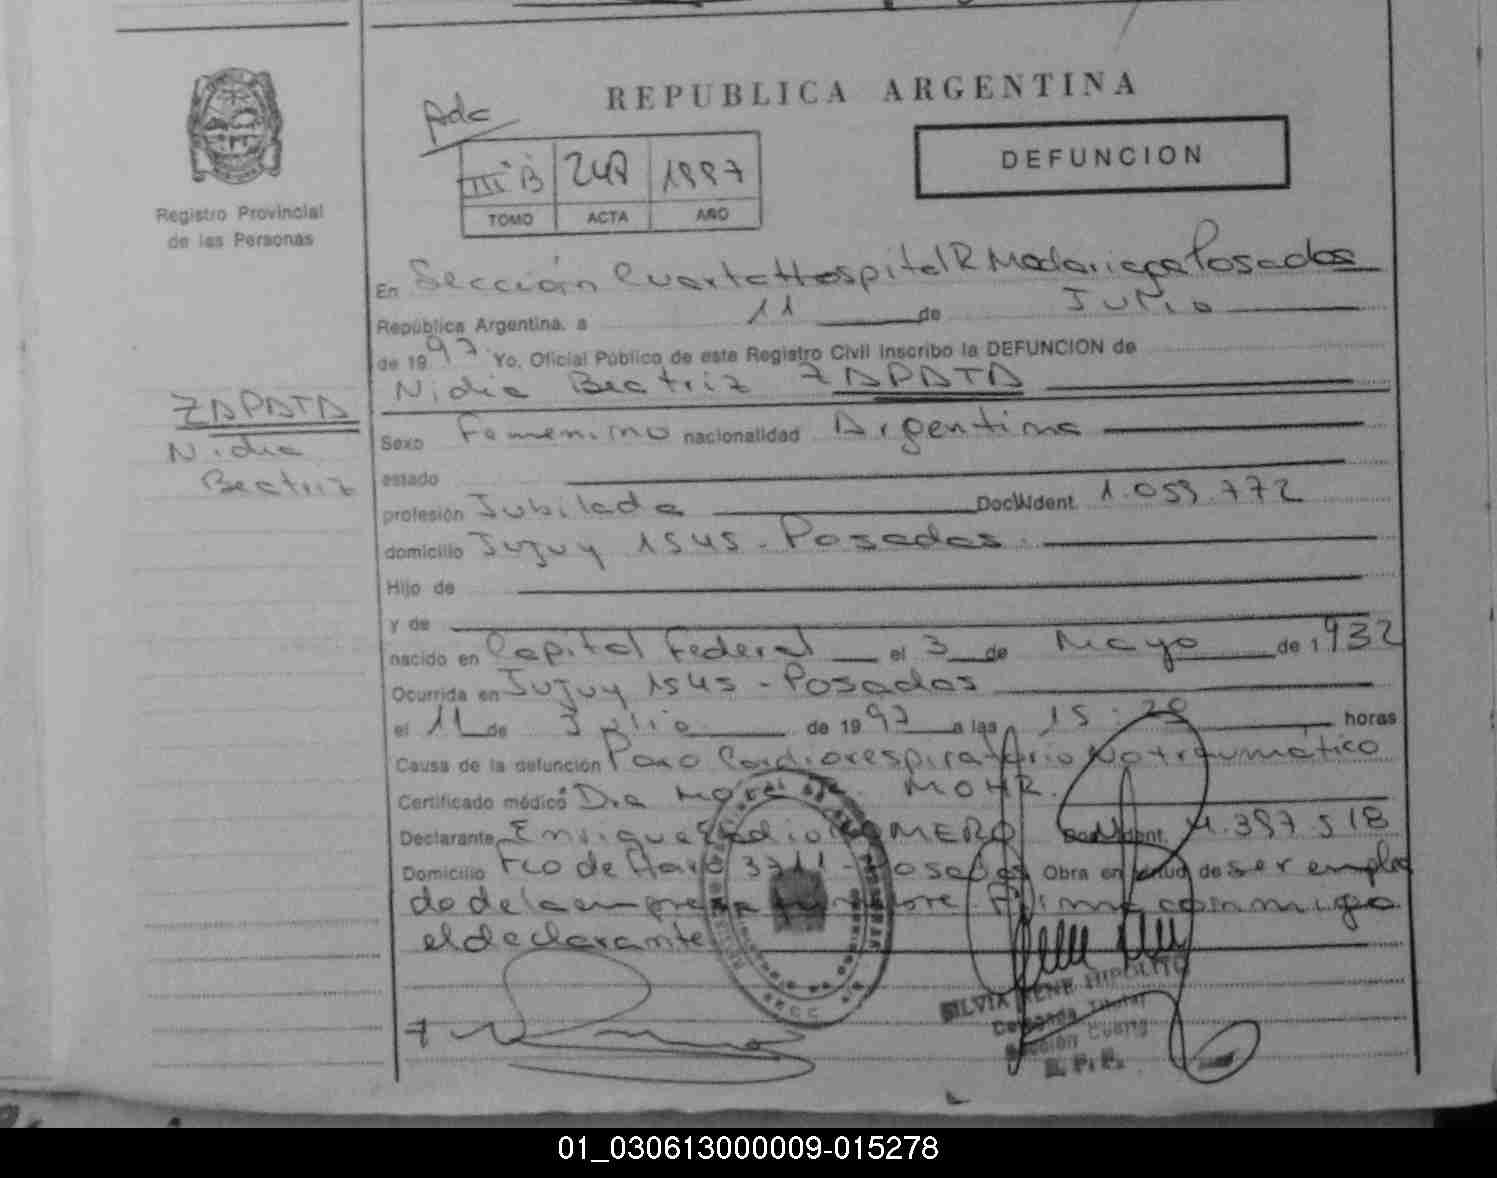 REPUBLICA ARGENTINA
Adc
DEFUNCION
III° B 247 1997
TOMO ACTA AÑO
Registro Provincial
de las Personas
En Sección Cuarta Hospital R Madariaga Posadas
República Argentina, a 11 de Julio
de 1997 Yo, Oficial Público de este Registro Civil inscribo la DEFUNCION de
Nidia Beatriz ZAPATA
ZAPATA
Nidia
Beatriz
Sexo Femenino nacionalidad Argentina
estado
profesión Jubilada Doc. Ident. 1.059.772
domicilio Jujuy 1545 - Posadas
Hijo de
y de
nacido en Capital Federal el 3 de Mayo de 1932
Ocurrida en Jujuy 1545 - Posadas
el 11 de Julio de 1997 a las 15:20 horas
Causa de la defunción Paro Cardiorespiratorio No traumático
Certificado médico Dra MOHR.
Declarante Enrique ROMERO Doc. Ident. 4.397.518
Domicilio 3711 - Posadas Obra en virtud de ser emplea
do de la empresa firma conmigo
el declarante
SILVIA IRENE HIPOLITO
Delegada Titular
Sección Cuarta
R. P. P.
01_030613000009-015278